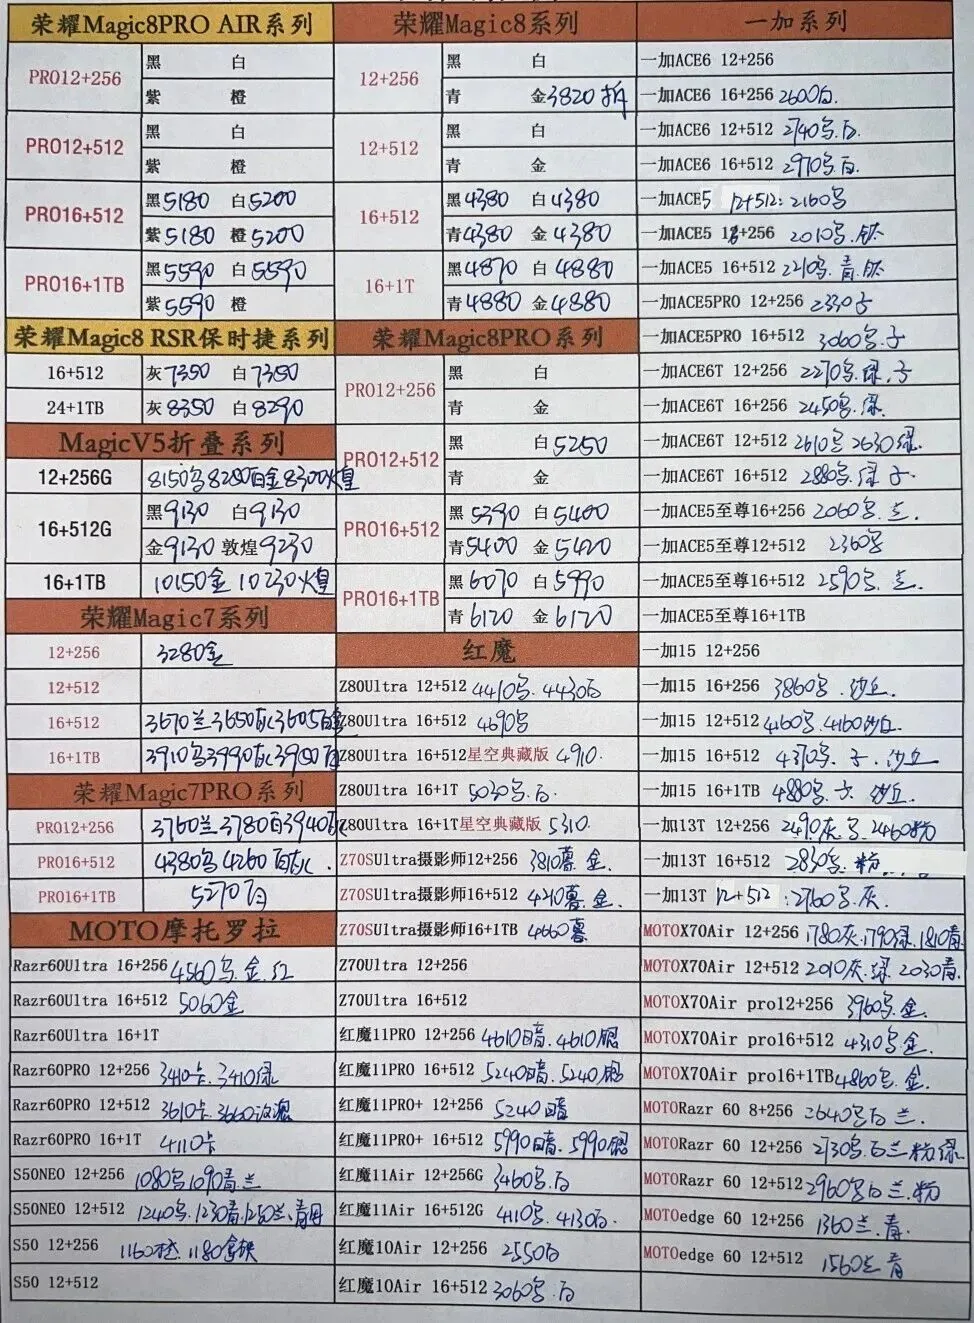 荣耀Magic8PRO AIR系列
PRO12+256
黑 白
紫 橙
PRO12+512
黑 白
紫 橙
PRO16+512
黑5180 白5200
紫5180 橙5200
PRO16+1TB
黑5590 白5590
紫5590 橙
荣耀Magic8 RSR保时捷系列
16+512 灰7350 白7350
24+1TB 灰8350 白8290
MagicV5折叠系列
12+256G 8150乌8280白金8300火皇
16+512G
黑9130 白9130
金9130 敦煌9230
16+1TB 10150金 10230火皇
荣耀Magic7系列
12+256 3280金
12+512
16+512 3670兰3650
16+1TB 3910乌3990
荣耀Magic7PRO系列
PRO12+256 3760兰3780白3940
PRO16+512 4380乌4260白
PRO16+1TB 5270白
MOTO摩托罗拉
Razr60Ultra 16+256 4560乌.金.红
Razr60Ultra 16+512 5060金
Razr60Ultra 16+1T
Razr60PRO 12+256 3410卡.3410绿
Razr60PRO 12+512 3610卡.3660
Razr60PRO 16+1T 4110卡
S50NEO 12+256 1080乌1090青兰
S50NEO 12+512 1240乌.1230青.1250兰
S50 12+256 1160 1180
S50 12+512
荣耀Magic8系列
12+256
黑 白
青 金3820拆
12+512
黑 白
青 金
16+512
黑4380 白4380
青4380 金4380
16+1T
黑4870 白4880
青4880 金4880
荣耀Magic8PRO系列
PRO12+256
黑 白
青 金
PRO12+512
黑 白5250
青 金
PRO16+512
黑5390 白5400
青5400 金5420
PRO16+1TB
黑6070 白5990
青6120 金6120
红魔
Z80Ultra 12+512 4410乌.4430白
Z80Ultra 16+512 4690乌
Z80Ultra 16+512星空典藏版 4910.
Z80Ultra 16+1T 5030乌.白.
Z80Ultra 16+1T星空典藏版 5310.
Z70SUltra摄影师12+256 3810暮.金.
Z70SUltra摄影师16+512 4210暮.金.
Z70SUltra摄影师16+1TB 4660暮
Z70Ultra 12+256
Z70Ultra 16+512
红魔11PRO 12+256 4610暗.4610银
红魔11PRO 16+512 5240暗.5240银
红魔11PRO+ 12+256 5240暗
红魔11PRO+ 16+512 5990暗.5990银
红魔11Air 12+256G 3460乌.白
红魔11Air 16+512G 4110乌.4130白.
红魔10Air 12+256 2550白
红魔10Air 16+512 3060乌.白
一加系列
一加ACE6 12+256
一加ACE6 16+256 2600白.
一加ACE6 12+512 2740乌.白.
一加ACE6 16+512 2970乌.白.
一加ACE5 12+512:2160乌
一加ACE5 16+256 2010乌.钛
一加ACE5 16+512 2210乌.青.钛
一加ACE5PRO 12+256 2330子
一加ACE5PRO 16+512 3060乌.子
一加ACE6T 12+256 2270乌.绿.子
一加ACE6T 16+256 2450乌.绿.
一加ACE6T 12+512 2610乌 2630绿.
一加ACE6T 16+512 2880乌.绿 子.
一加ACE5至尊16+256 2060乌.兰.
一加ACE5至尊12+512 2360乌
一加ACE5至尊16+512 2590乌.兰.
一加ACE5至尊16+1TB
一加15 12+256
一加15 16+256 3860乌.沙丘.
一加15 12+512 4160乌.4160沙丘.
一加15 16+512 4370乌.子.沙丘
一加15 16+1TB 4880乌. 沙丘.
一加13T 12+256 2490灰乌.2460粉
一加13T 16+512 2830乌.粉.
一加13T 12+512:2760乌.灰.
MOTOX70Air 12+256 1780灰.1790绿.1810青.
MOTOX70Air 12+512 2010灰.绿.2030青.
MOTOX70Air pro12+256 3960乌.金.
MOTOX70Air pro16+512 4310乌.金.
MOTOX70Air pro16+1TB4860乌.金.
MOTORazr 60 8+256 2640乌白兰.
MOTORazr 60 12+256 2730乌.白兰粉绿
MOTORazr 60 12+512 2960乌白兰.粉
MOTOedge 60 12+256 1360兰.青.
MOTOedge 60 12+512 1560兰青